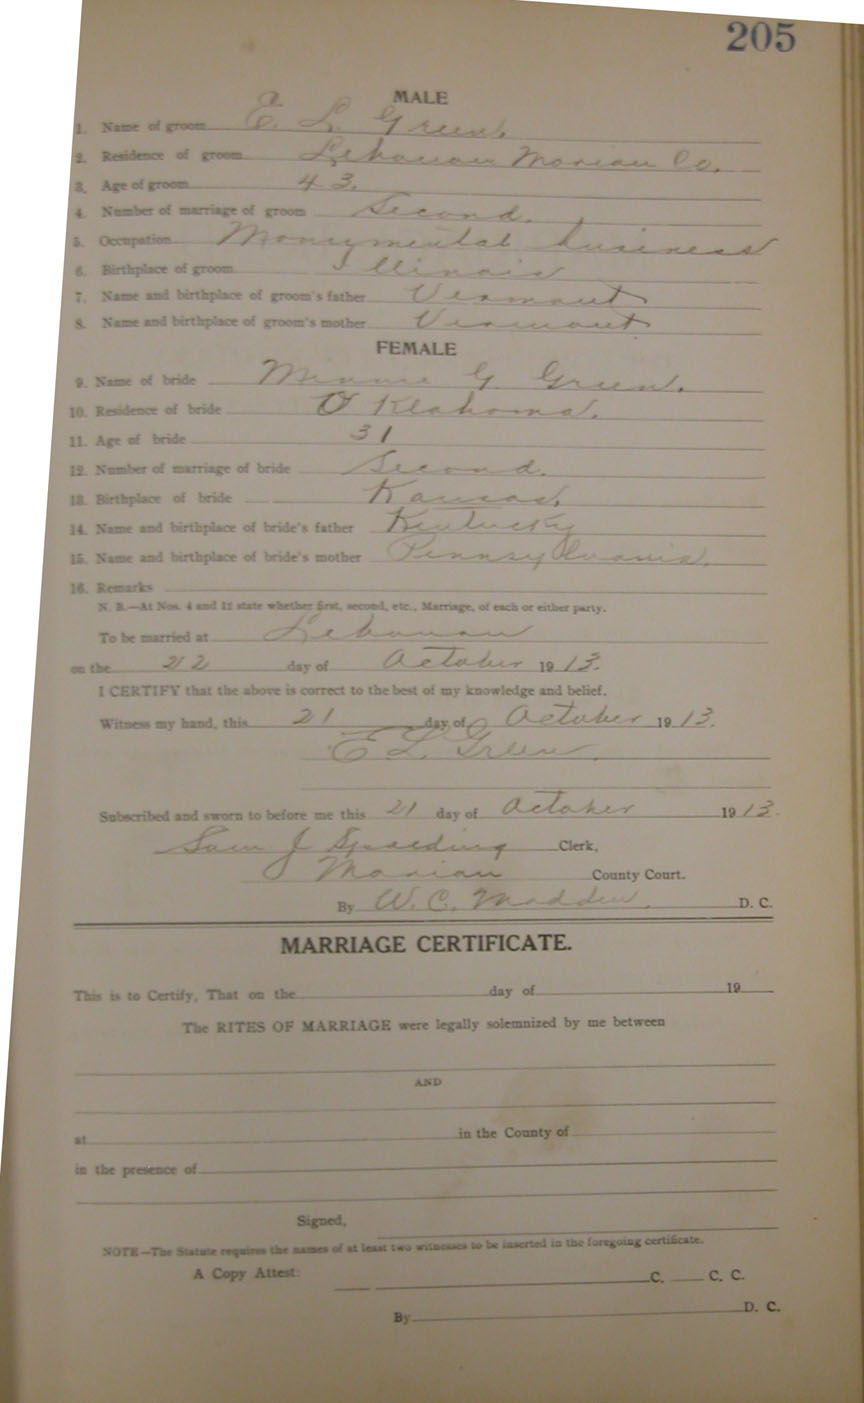 205
MALE
1. Name of groom E. L. Green.
2. Residence of groom Lebanon Marion Co.
3. Age of groom 43.
4. Number of marriage of groom Second.
5. Occupation Monumental business
6. Birthplace of groom Illinois
7. Name and birthplace of groom's father Vermont
8. Name and birthplace of groom's mother Vermont
FEMALE
9. Name of bride Minnie G Green.
10. Residence of bride Oklahoma.
11. Age of bride 31
12. Number of marriage of bride Second.
13. Birthplace of bride Kansas.
14. Name and birthplace of bride's father Kentucky
15. Name and birthplace of bride's mother Pennsylvania.
16. Remarks
N. B.—At Nos. 4 and 12 state whether first, second, etc., Marriage, of each or either party.
To be married at Lebanon
on the 22 day of October 1913.
I CERTIFY that the above is correct to the best of my knowledge and belief.
Witness my hand, this 21 day of October 1913.
E L. Green.
Subscribed and sworn to before me this 21 day of October 1913.
Sam J Spalding Clerk,
Marion County Court.
By W. C. Madden. D. C.
MARRIAGE CERTIFICATE.
This is to Certify, That on the day of 19
The RITES OF MARRIAGE were legally solemnized by me between
AND
at in the County of
in the presence of
Signed,
NOTE—The Statute requires the names of at least two witnesses to be inserted in the foregoing certificate.
A Copy Attest: C. C. C.
By D. C.